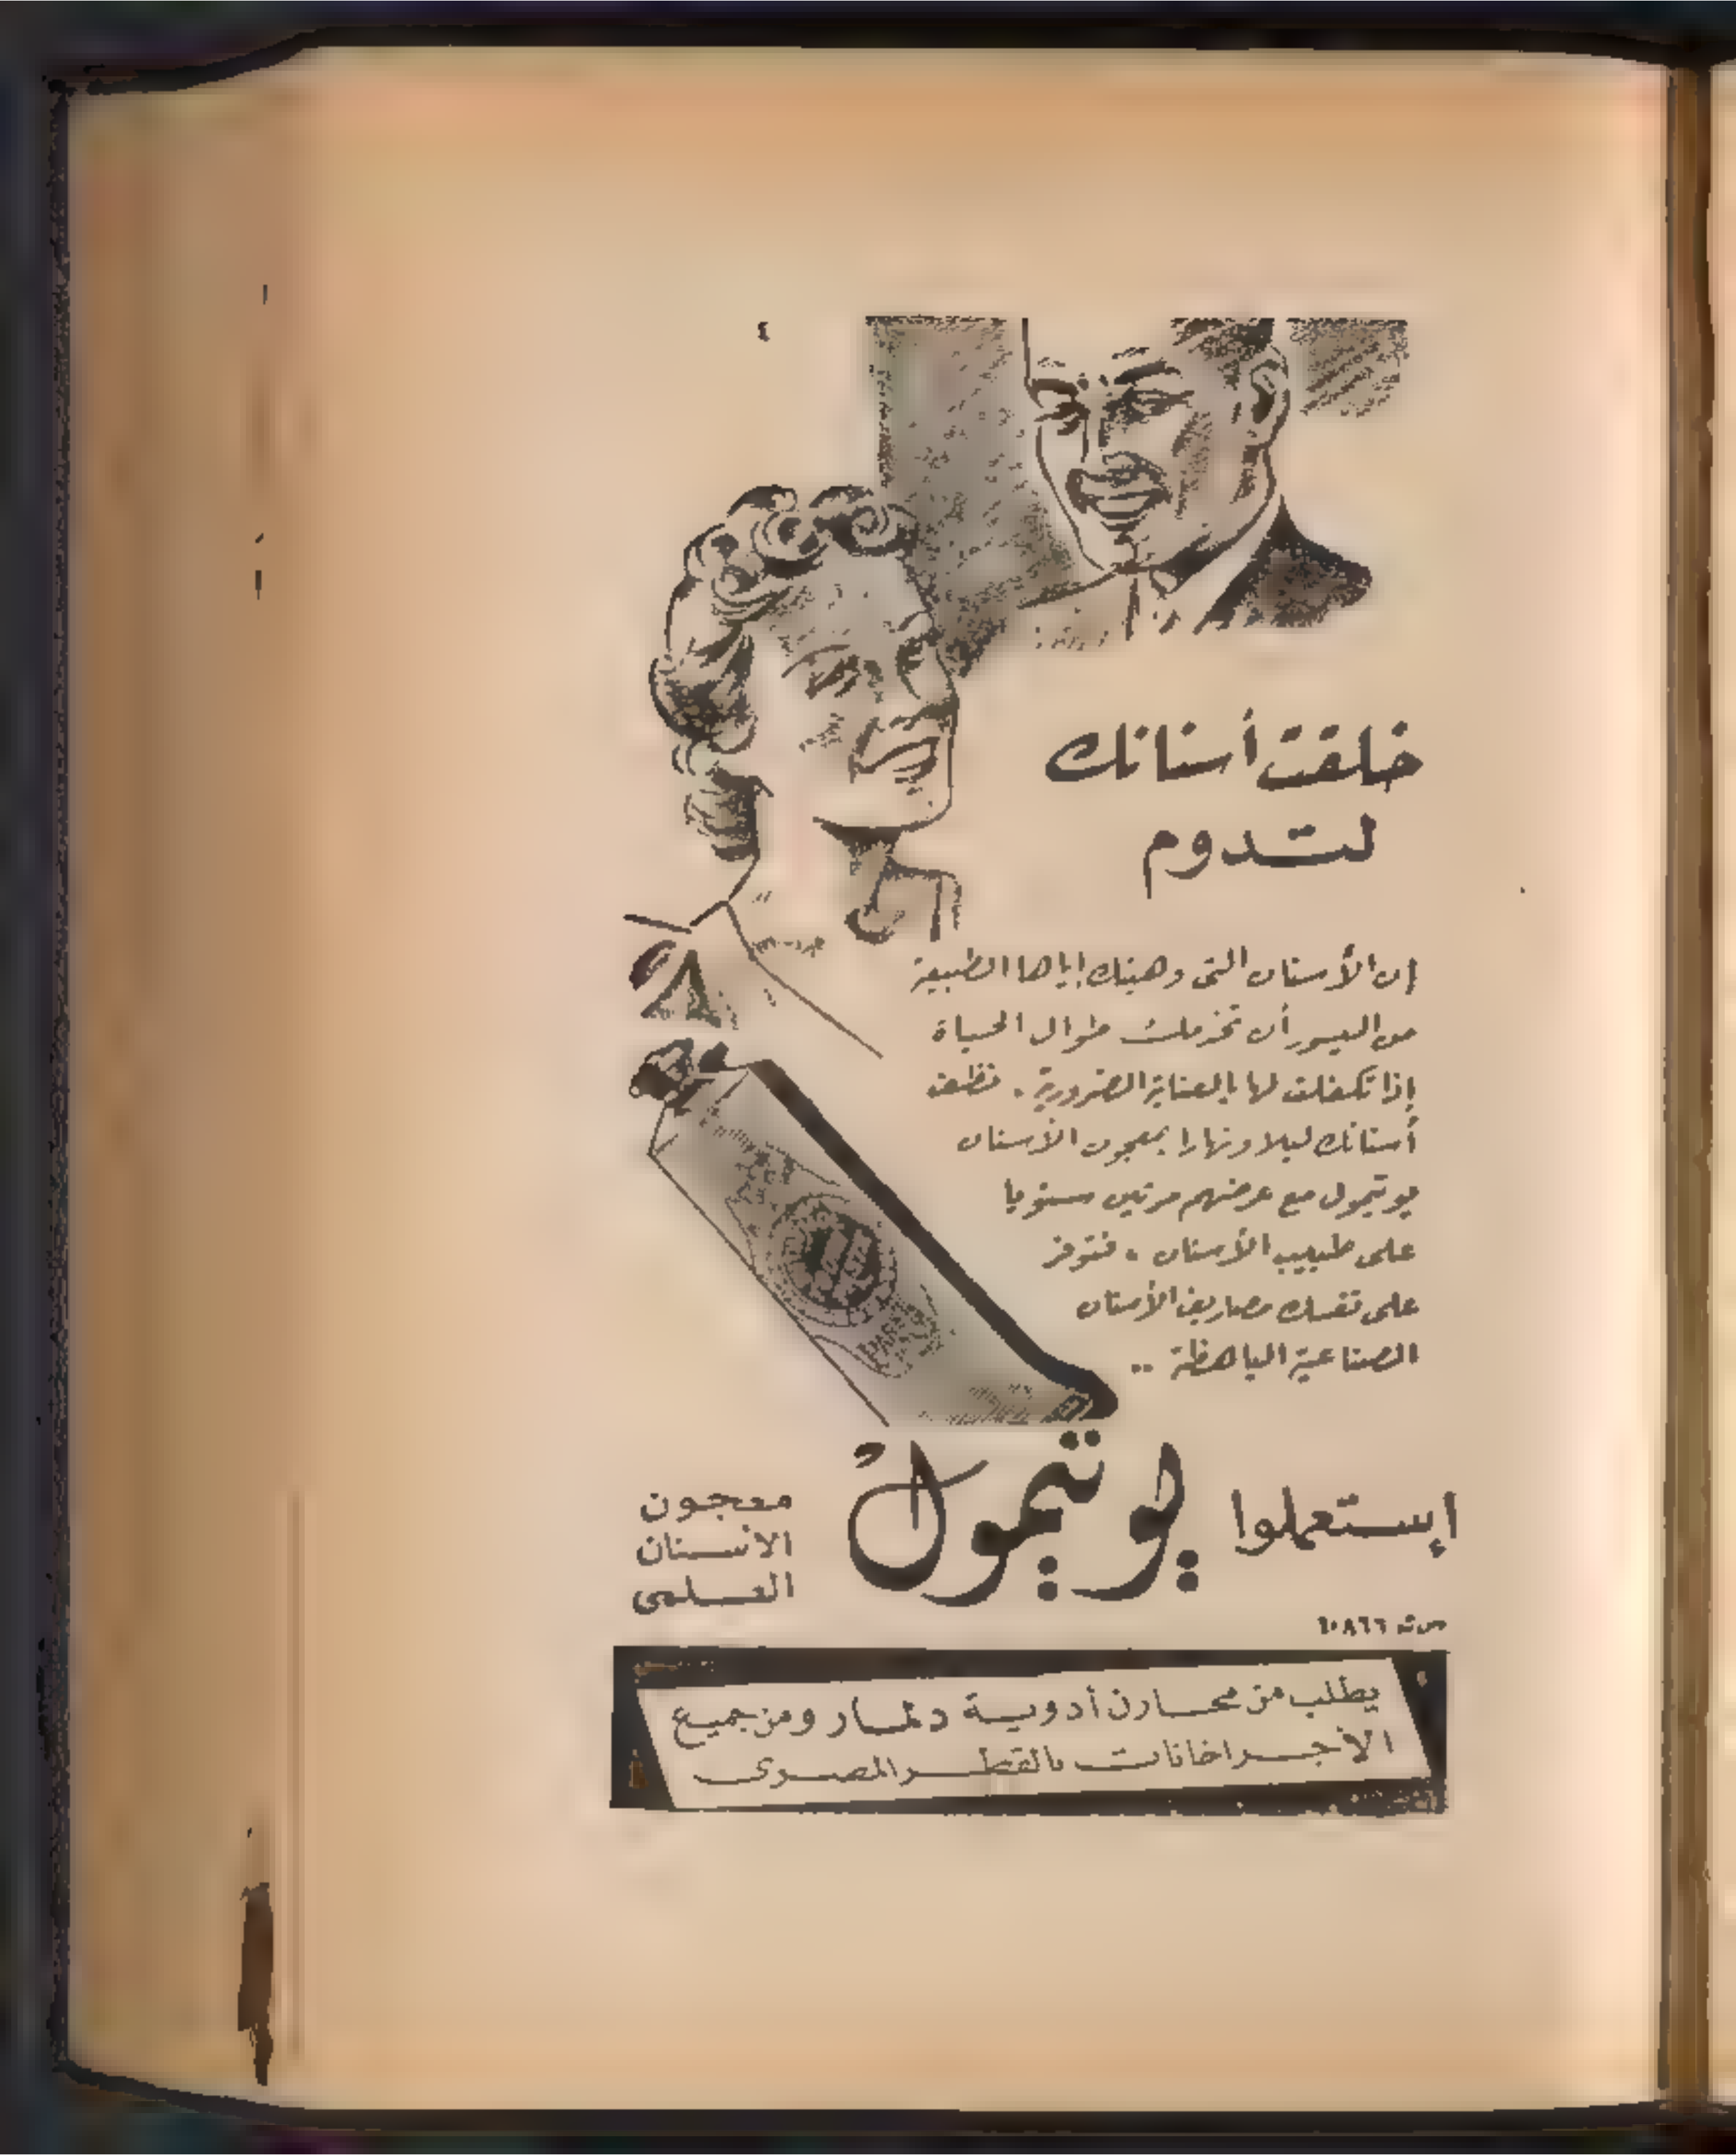 خلقت أسنانك
لتدوم
إن الأسنان التى وهبتك إياها الطبيعة
من الميسور أن تخدمك طوال الحياة
إذا تكفلت لها بالعناية الضرورية . نظف
أسنانك ليلا ونهارا بمعجون الأسنان
يوتيمول مع عرضهم مرتين سنويا
على طبيب الأسنان ، فتوفر
على نفسك مصاريف الأسنان
الصناعية الباهظة ..
إستعملوا يوتيمول
معجون
الاسنان
العلمى
س ت ٦٠٨٦٦
يطلب من مخازن أدوية دلمار ومن جميع
الأجزاخانات بالقطر المصرى